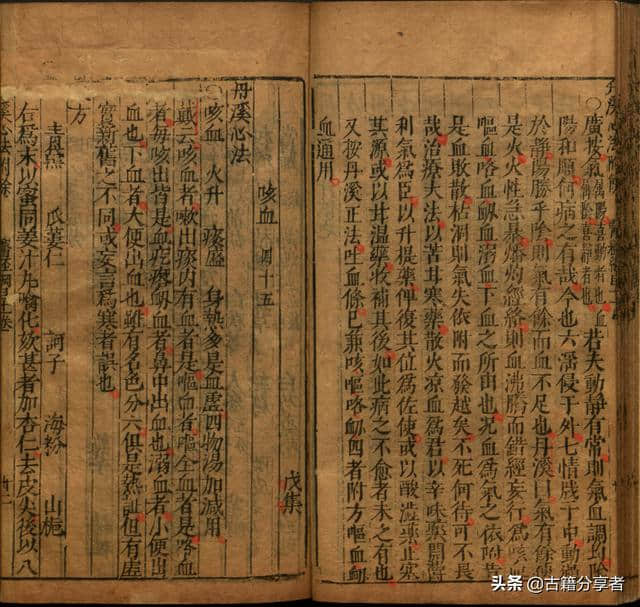 ○廣按氣屬陽喜動者也血屬陰喜靜者也若夫動靜有常則氣血調均陰
陽和順何病之有哉今也六滛侵于外七情戕于中動過
於靜陽勝乎陰則氣有餘而血不足也丹溪曰氣有餘便
是火火性急暴燔灼經絡則血沸騰而錯經妄行爲咳血
嘔血咯血衂血溺血下血之所由也况血爲氣之依附若
是血敗散枯涸則氣失依附而發越矣不死何待可不畏
哉治療大法以苦甘寒藥散火凉血爲君以辛味藥開欝
利氣爲臣以升提藥俾復其位爲佐使或以酸澁藥止塞
其源或以甘溫藥收補其後如此病之不愈者未之有也
又按丹溪正法吐血條已兼咳嘔咯衂四者附方嘔血衂
血通用
丹溪心法 戊集
咳血 門十五
○咳血 火升 痰盛 身熱多是血虛四物湯加減用
戴云咳血者嗽出痰内有血者是嘔血者嘔全血者是咯血
者每咳出皆是血疙瘩衂血者鼻中出血也溺血者小便出
血也下血者大便出血也雖有名色分六但是熱証但有虛
實新舊之不同或妄言爲寒者誤也
方
青黛 瓜蔞仁 訶子 海粉 山梔
右爲末以蜜同姜汁丸噙化欬甚者加杏仁去皮尖後以八
頭条 @古籍分享者